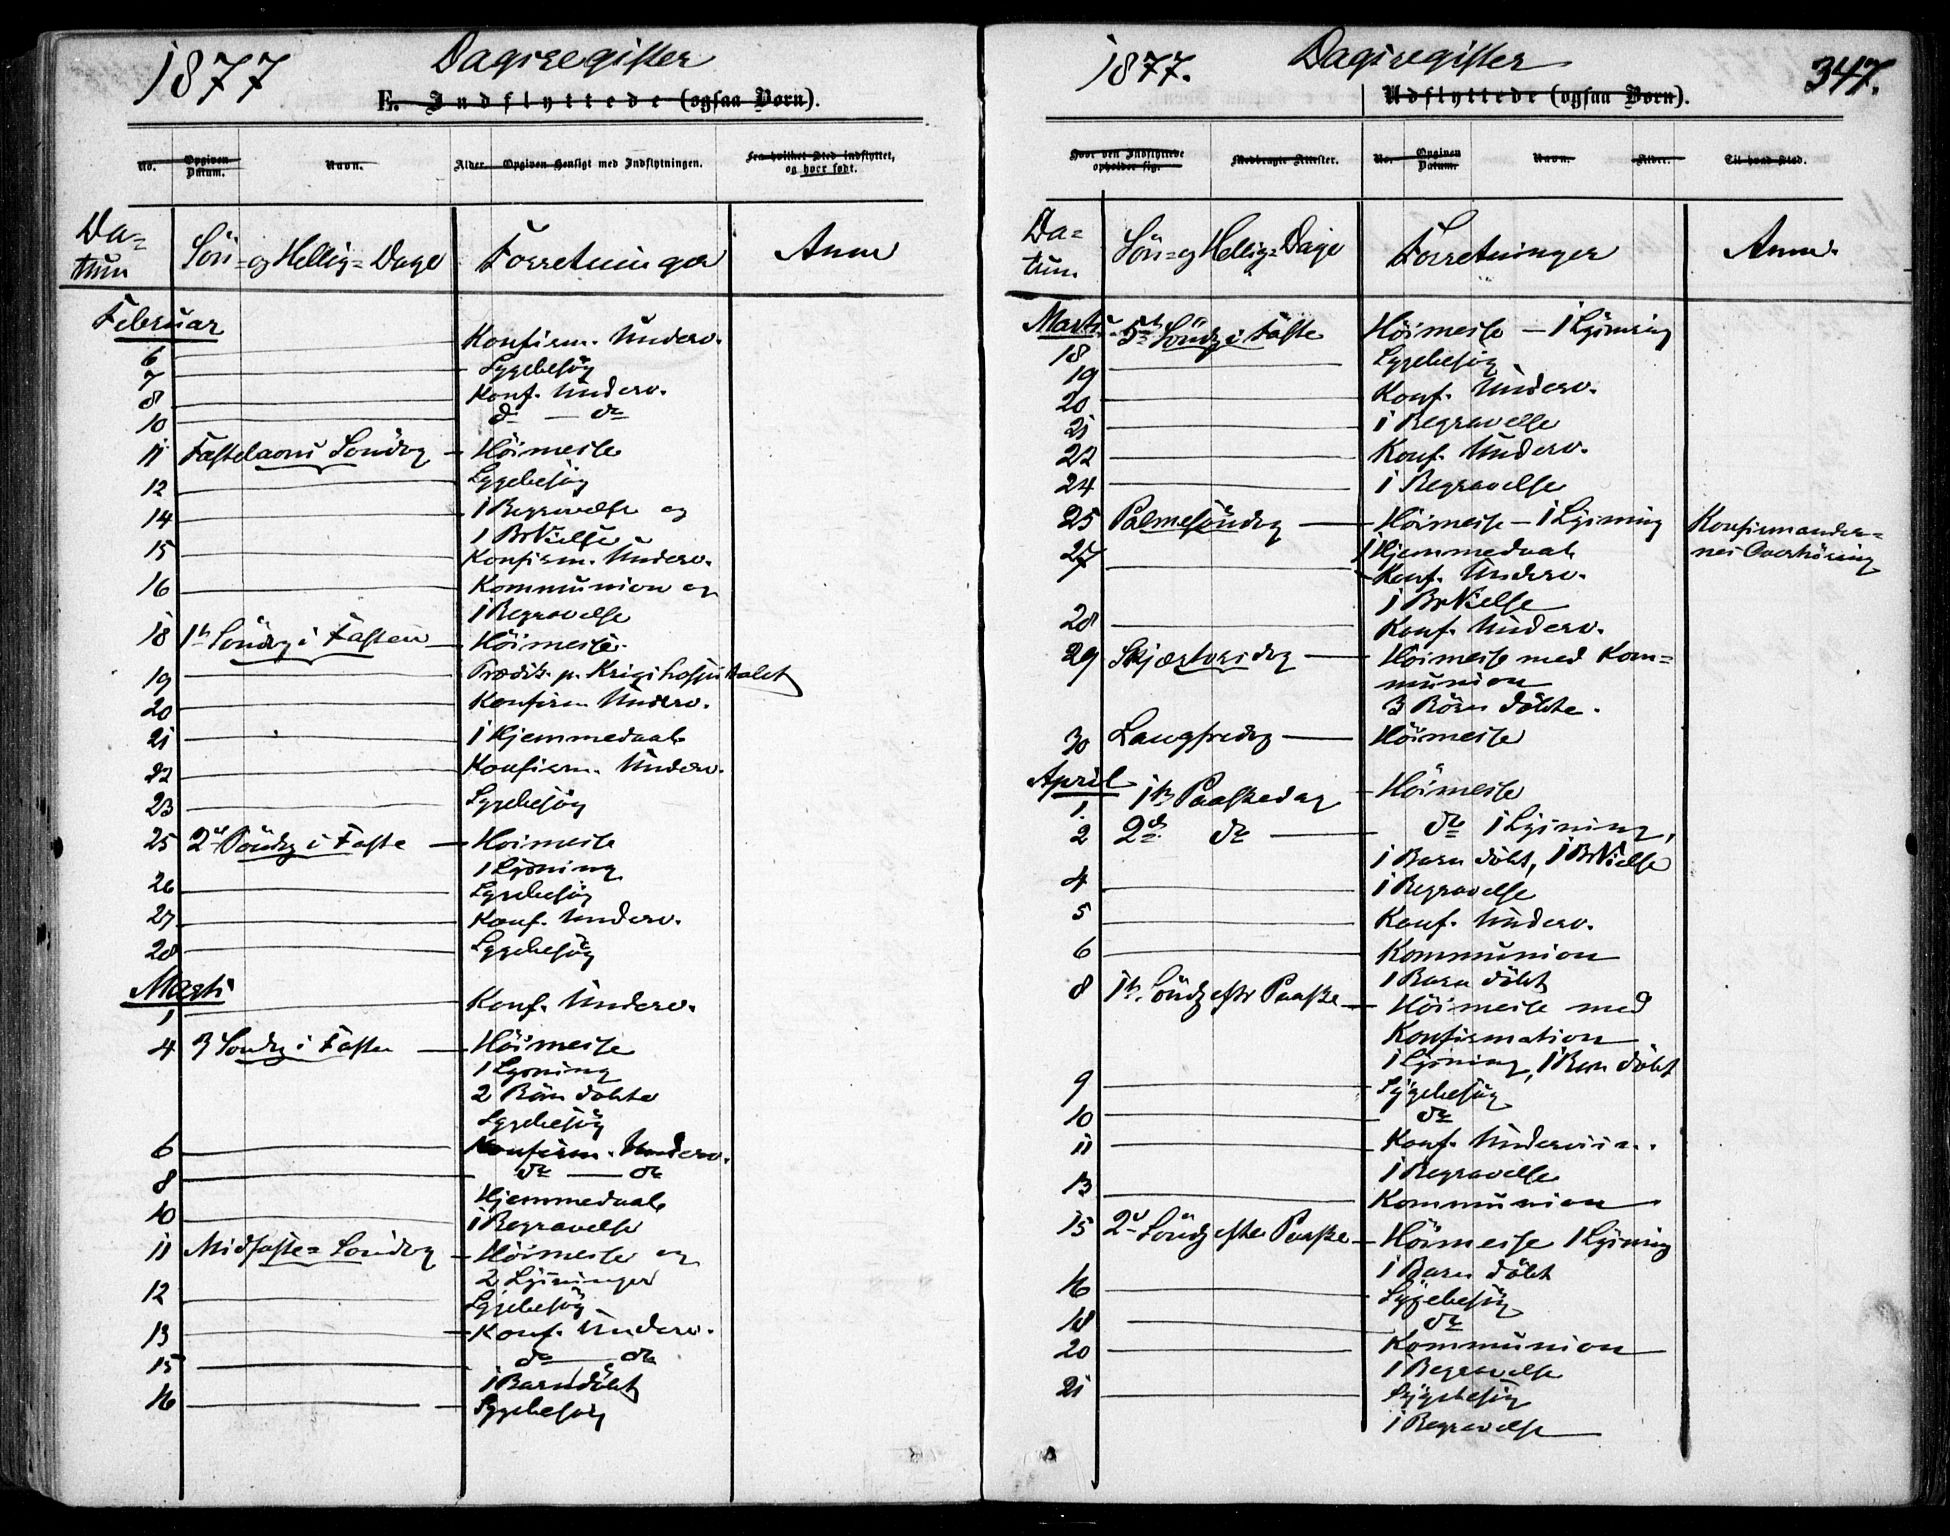 1877 Dagsregister
E. Indflyttede (ogsaa Børn).
No. Opgiven Datum. Navn. Alder. Opgiven Hensigt med Indflytningen. Fra hvilket Sted indflyttet, og hvor født.
Da= tum Søn= og Hellig=Dage Forretninger Anm
Februar
6 Konfirm. Underv.
7 Sygebesøg
8 Konf. Underv.
10 do — do
11 Fastelavns Søndag Höimesse
12 Sygebesøg
14 1 Begravelse og
1 BrVielse
15 Konfirm. Underv.
16 Kommunion og
1 Begravelse
18 1ste Søndag i Fasten Höimesse
19 Prædik. p. Krigshospitalet
20 Konfirm Underv.
21 1 Hjemmedaab
22 Konfirm. Underv.
23 Sygebesøg
25 2den Söndg i Faste Höimesse
1 Lysning
26 Sygebesøg
27 Konf. Underv.
28 Sygebesøg
Marts
1 Konf. Underv.
4 3 Søndg i Faste Höimesse
1 Lysning
2 Börn döbte
Sygebesøg
6 Konfirm. Underv.
8 do — do
Hjemmedaab
10 1 Begravelse
11 Midfaste=Søndag Höimesse og
2 Lysninger
12 Sygebesøg
13 Konf. Underv.
15 do — do
1 Barn döbt
16 Sygebesøg
1877. Dagsregister 347.
Udflyttede (ogsaa Børn).
Hvor den Indflyttede opholder sig. Medbragte Attester. No. Opgiven Datum. Navn. Alder. Til hvad Sted.
Da= tum Søn= og Hellig=Dage Forretninger Anm.
Marts
18 5te Søndg i Faste Höimesse — 1 Lysning
19 Sygebesøg
20 Konf. Underv.
21 1 Begravelse
22 Konf. Underv.
24 1 Begravelse
25 Palmesöndag Höimesse — 1 Lysning Konfirmander=
27 1 Hjemmedaab nes Overhöring
Konf. Underv.
1 BrVielse
28 Konf. Underv.
29 Skjærtorsdag Höimesse med Kom=
munion
3 Börn döbte.
30 Langfredag Höimesse
April
1. 1ste Paaskedag Höimesse
2 2den do do 1 Lysning,
1 Barn döbt, 1 BrVielse
4 1 Begravelse
5 Konf. Underv.
6 Kommunion
1 Barn döbt
8 1ste Söndg efter Paaske Höimesse med
Konfirmation
1 Lysning, 1 Barn döbt
9 Sygebesøg
10 do
11 Konf. Undervisn.
1 Begravelse
13 Kommunion
15 2den Söndg efter Paaske Höimesse 1 Lysning
1 Barn döbt
16 Sygebesøg
18 do
20 Kommunion
1 Begravelse
21 Sygebesøg
1 Begravelse